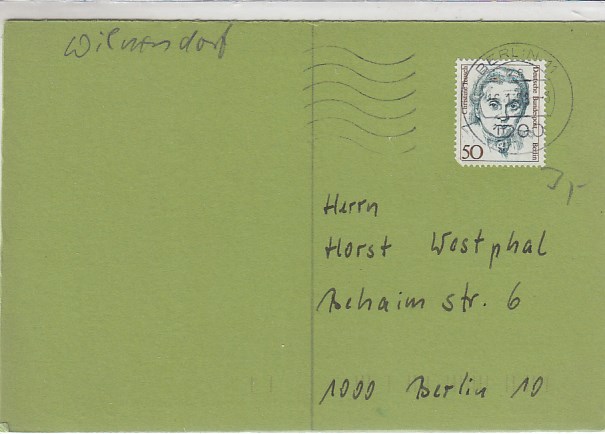 Wilmersdorf
BERLIN 11
1000
Christine Teusch
Deutsche Bundespost Berlin
50
Herrn
Horst Westphal
Behaim str. 6
1000 Berlin 10